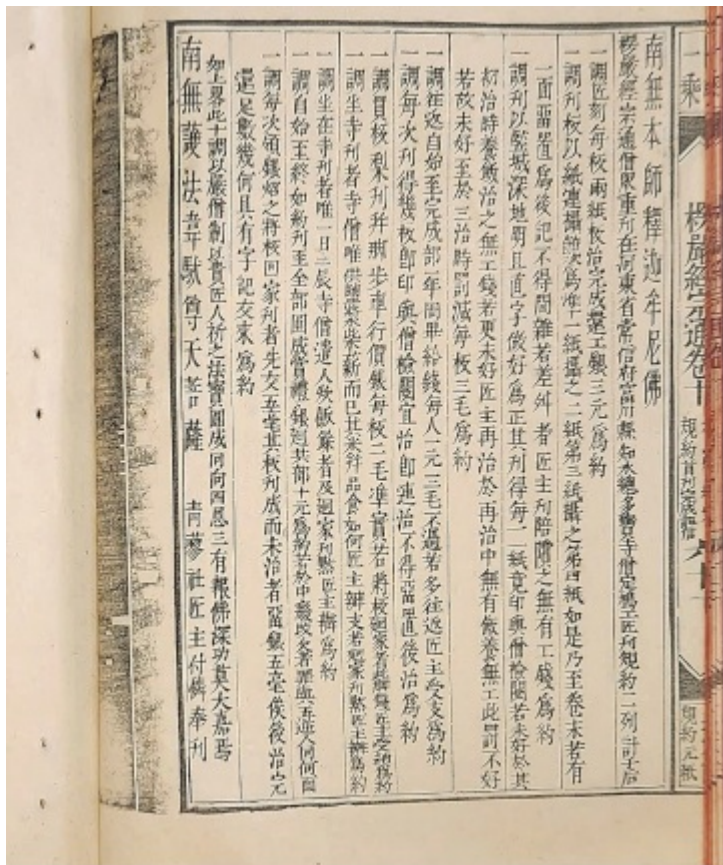 一乘
楞嚴經宗通卷十
規約首刊完成語
規約元紙
南無本師釋迦牟尼佛
楞嚴經宗通僧眾重刊在河東省常信府富川縣知水總多寶寺僧定工匠刊規約一列計于后
一調匠刻每板兩紙板治完成還工銀三元為約
一調刊板以紙連攝節次為准一紙攝之二紙第三紙攝之第四紙如是乃至卷末若有
一面畱置為後記不得間雜若差舛者匠主刊陪償之無有工錢為約
一調刊以堅城深地明且直字儀好為正其刊得每一二紙竟印與僧檢閱若未好於其
初治時養飯治之無工錢若更未好匠主再治於再治中無有飯養無工此罰不好
若故未好至於三治時罰減每板三毛為約
一調往返自始至完成部一年周畢給錢每人一元二毛不過若多往返匠主受支為約
一調每次刊得幾板即印與僧檢閱宜治即連治不得畱置後治為約
一調買板梨刊并步車行價錢每板二毛準實若將板迴家者此腳錢匠主受為約
一調坐寺刊者寺僧唯供鹽柴薪而已其菜并品食如何匠主辦支若迴家刊點匠主辦為約
一調坐在寺刊者唯一日三辰寺僧遣人炊飯餘者及迴家刊點匠主辦為約
一調自始至終如紛刊至全部圓成賞禮銀迴其部十元為約若於中
一調每次領銀炤之將板回家刊者先交五毫其板刊成而未治者畱銀五毫俟後治完
還足數幾何具有字記交來為約
如上畧此十調以嚴僧制以貴匠人祈之法寶圓成回向四恩三有報佛深功莫大嘉焉
南無護法韋馱尊天菩薩 青蓼社匠主付梓奉刊